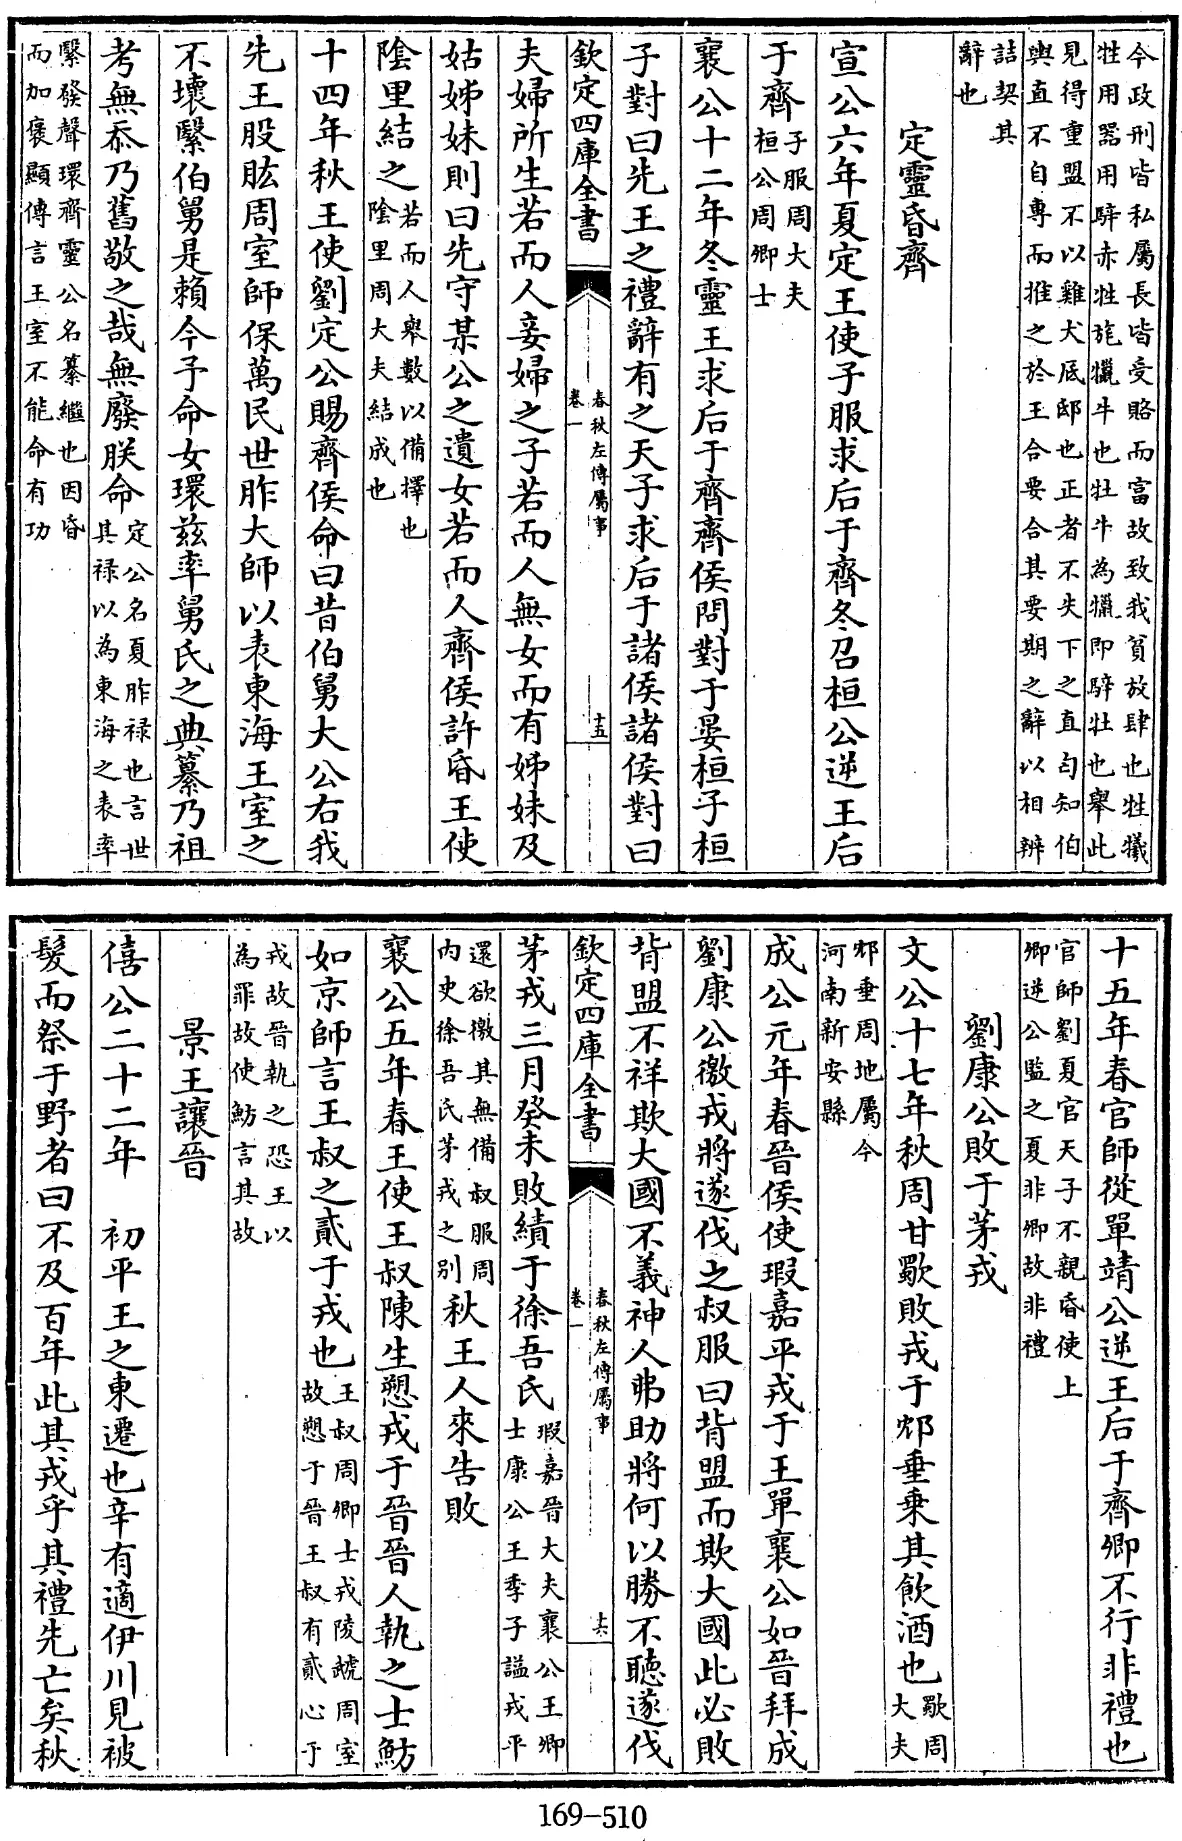 今政刑皆私屬長皆受賂而富故致我貧放肆也牲犧
牲用噐用騂赤牲旄犣牛也牡牛為犣即騂牡也舉此
見得重盟不以雞犬底邸也正者不失下之直匄知伯
輿直不自專而推之於王合要合其要期之辭以相辨
詰契其
辭也
定靈昏齊
宣公六年夏定王使子服求后于齊冬召桓公逆王后
于齊子服周大夫桓公周卿士
襄公十二年冬靈王求后于齊齊侯問對于晏桓子桓
子對曰先王之禮辭有之天子求后于諸侯諸侯對曰
欽定四庫全書
春秋左傳屬事
卷一
十五
夫婦所生若而人妾婦之子若而人無女而有姊妹及
姑姊妹則曰先守某公之遺女若而人齊侯許昏王使
陰里結之若而人舉數以備擇也陰里周大夫結成也
十四年秋王使劉定公賜齊侯命曰昔伯舅大公右我
先王股肱周室師保萬民世胙大師以表東海王室之
不壞繄伯舅是賴今予命女環茲率舅氏之典纂乃祖
考無忝乃舊敬之哉無廢朕命定公名夏胙禄也言世其禄以為東海之表率
繄發聲環齊靈公名纂繼也因昏
而加褒顯傳言王室不能命有功
十五年春官師從單靖公逆王后于齊卿不行非禮也
官師劉夏官天子不親昏使上
卿逆公監之夏非卿故非禮
劉康公敗于茅戎
文公十七年秋周甘歜敗戎于邥垂乗其飲酒也歜周大夫
邥垂周地屬今
河南新安縣
成公元年春晉侯使瑕嘉平戎于王單襄公如晉拜成
劉康公徼戎將遂伐之叔服曰背盟而欺大國此必敗
背盟不祥欺大國不義神人弗助將何以勝不聽遂伐
欽定四庫全書
春秋左傳屬事
卷一
十六
茅戎三月癸未敗績于徐吾氏瑕嘉晉大夫襄公王卿士康公王季子謚戎平
還欲徼其無備叔服周內史徐吾氏茅戎之別秋王人來告敗
襄公五年春王使王叔陳生愬戎于晉晉人執之士魴
如京師言王叔之貳于戎也王叔周卿士戎陵虣周室故愬于晉王叔有貳心于
戎故晉執之恐王以
為罪故使魴言其故
景王讓晉
僖公二十二年　初平王之東遷也辛有適伊川見被
髮而祭于野者曰不及百年此其戎乎其禮先亡矣秋
169–510